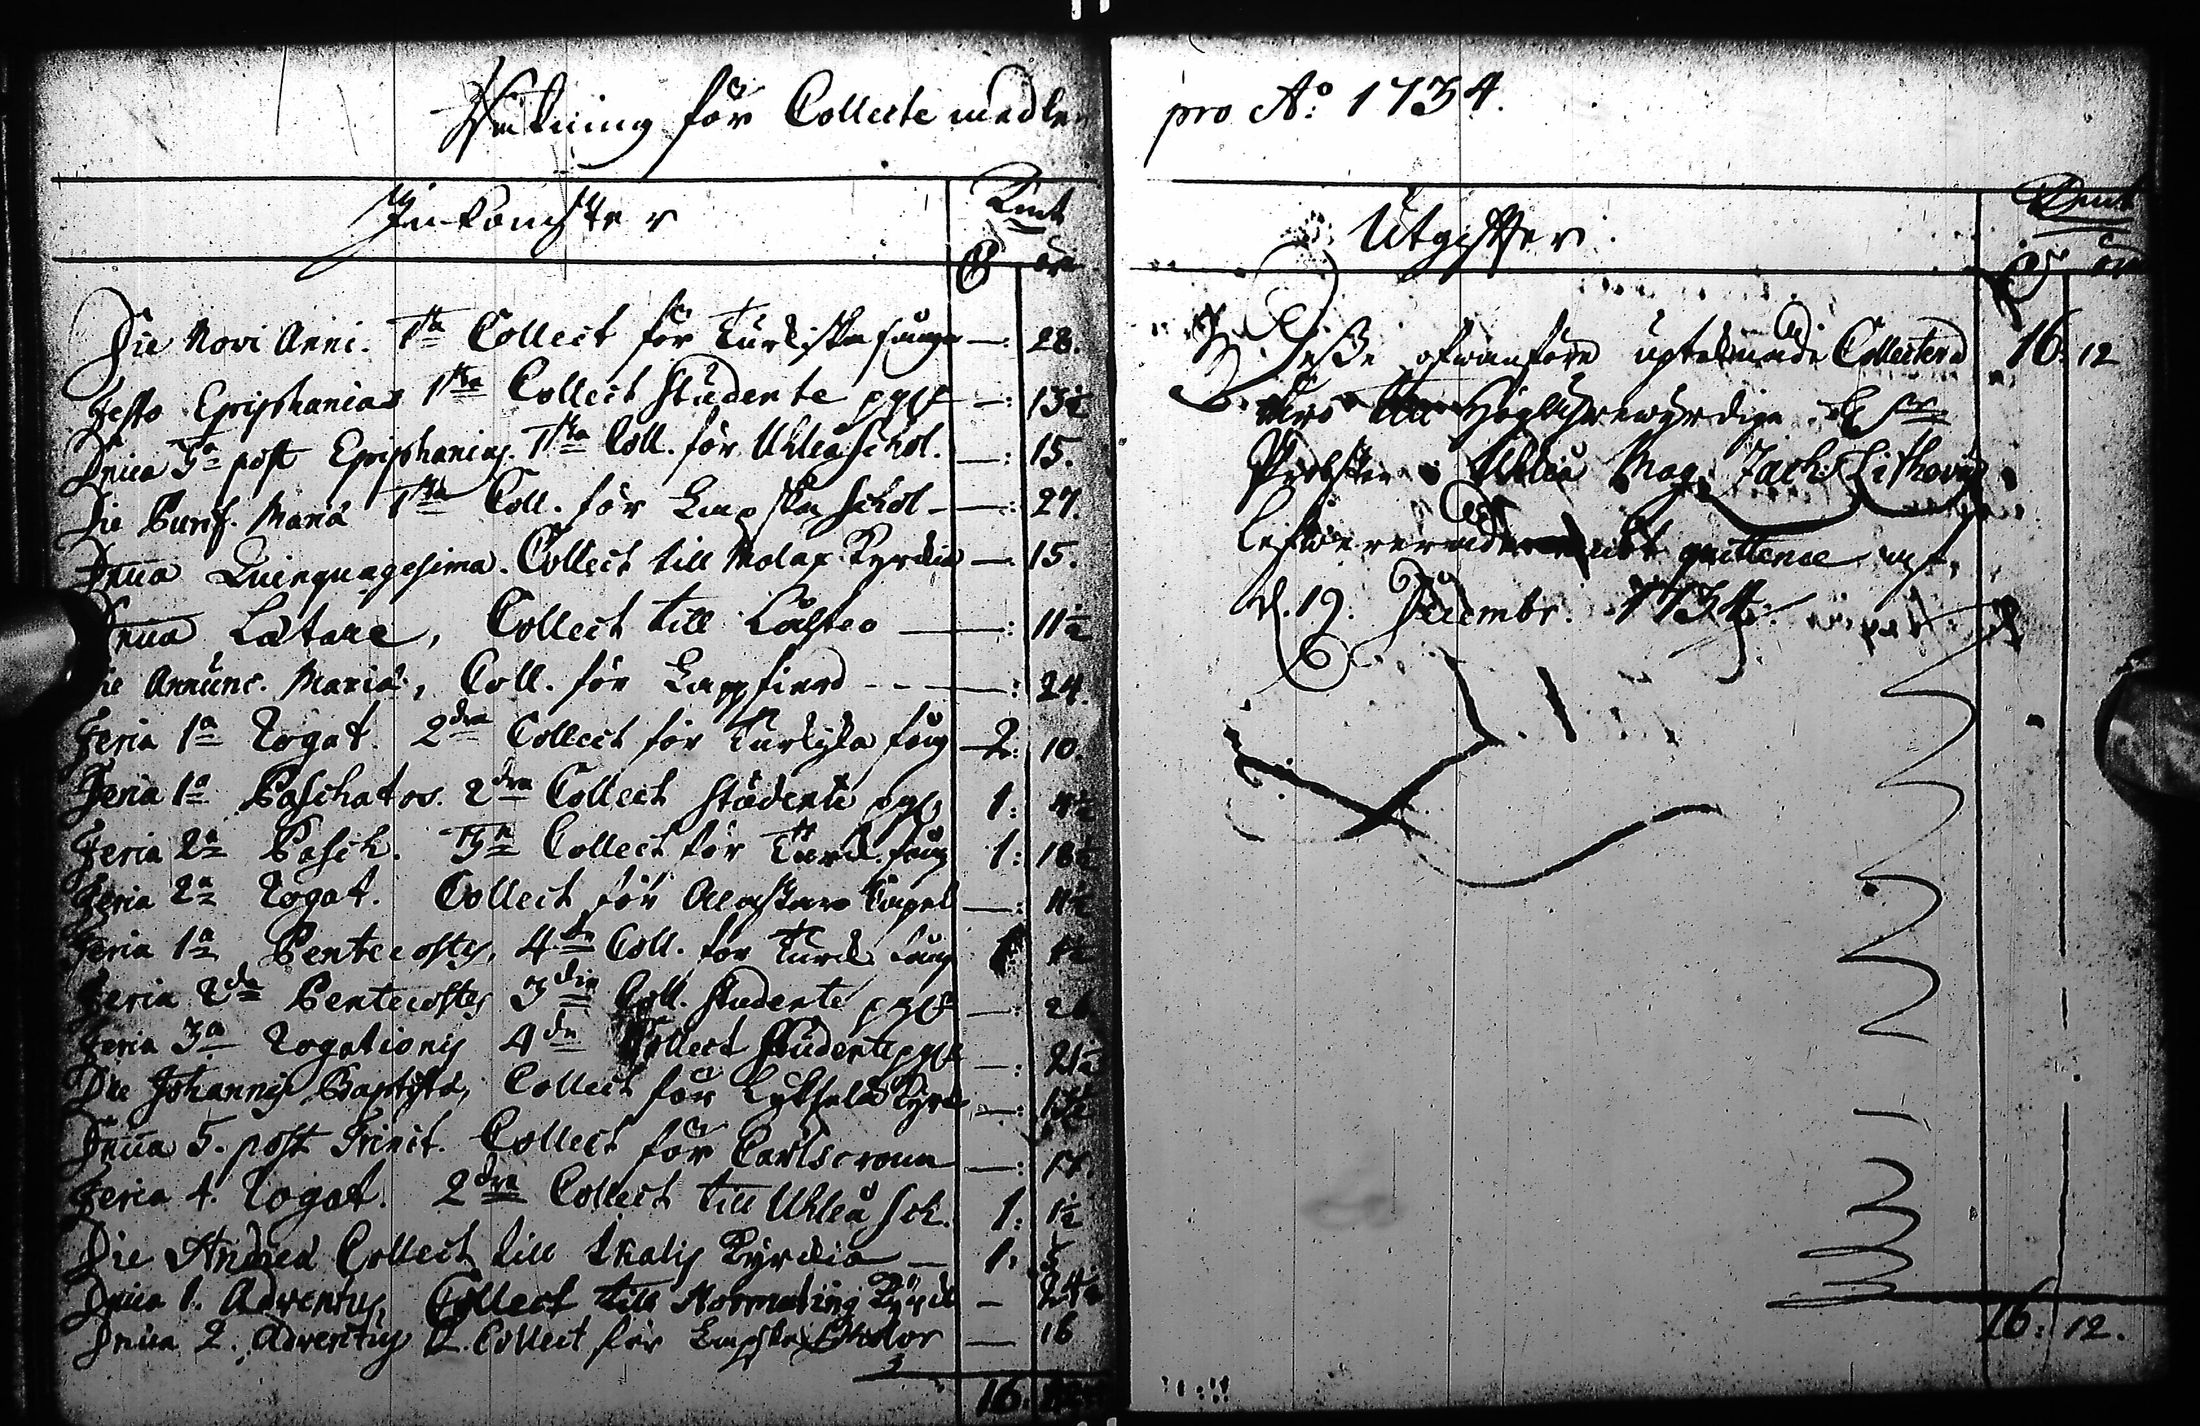 Räkning för Collecte medlen
Inkomster
Kmt
öre
Die Novi Anni. 1sta Collect för Turkiska fånga —: 28.
Festo Epiphanias 1sta Collect Studente —: 13½
Dnica 3a post Epiphanias. 1sta Coll. för Uhleå Schol. —: 15.
Die Purif. Mariæ 1sta Coll. för Lapska Schol —: 27.
Dnica Quinquagesima. Collect till Molax Kyrckia —: 15.
Dnica Lætare, Collect till —: 11½
Die Annunc. Mariæ, Coll. för Lappfierd —: 24.
Feria 1a Rogat. 2dra Collect för Turkiska fång 2: 10.
Feria 1a Paschatos. 2dra Collect studente 1: 4½
Feria 2a Pasch. 3a Collect för Turck. fång 1: 18½
Feria 2a Rogat. Collect för Alaskare Capel —: 11½
Feria 1a Pentecostes, 4de Coll. för Turck fång 1½
Feria 2da Pentecostes 3die Coll. studente —: 26
Feria 3a Rogationis 4de Collect Studente —: 21½
Die Johannis Baptistæ, Collect för Lyksela Kyrck —: 13½
Dnica 5. post Trinit. Collect för Carlscrona —: 17.
Feria 4. Rogat. 2dra Collect till Uhleå Sch. 1: 1½
Die Andreæ Collect till Kyrckia — 1: 5
Dnica 1. Adventus, Collect till Normaling Kyrck — 24½
Dnica 2. Adventus 2. Collect för Lapska Scholor — 16
16. 12.
pro Ao: 1734.
Utgifter.
Kmt
öre
Desse ofwanföre uptecknade Collecter 16. 12
äro Höglährewyrdige
Probsten i Uhleå Mag. Zach: Lithovius
lefwererade quittence af
d. 19. Decembr. 1734.
16: 12.